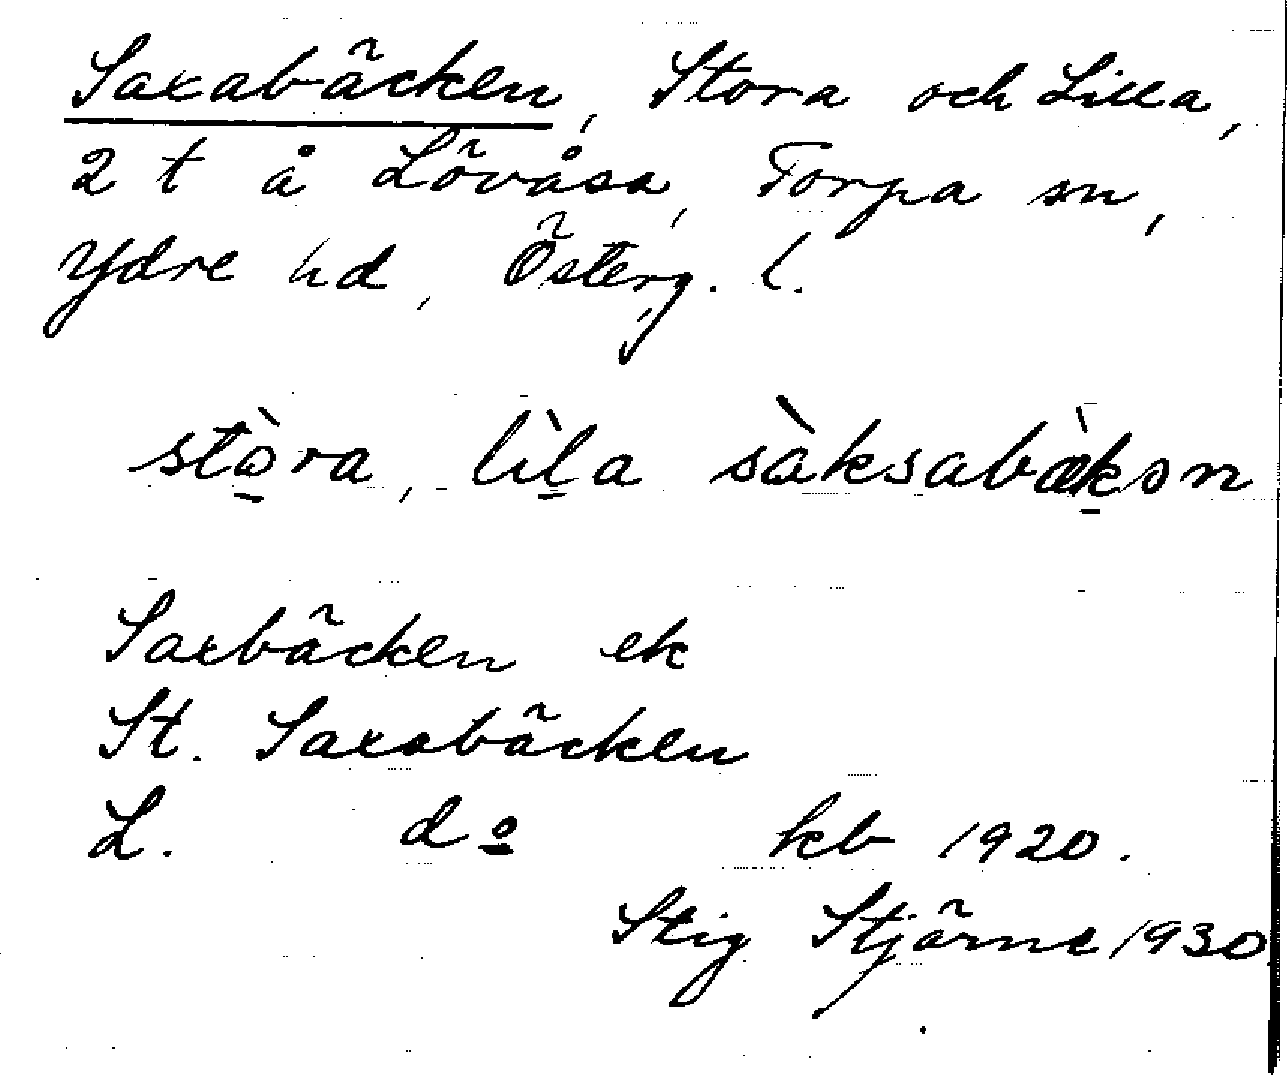 Saxabäcken, Stora och Lilla,
2 t å Lövåsa, Torpa sn,
Ydre hd, Österg. l.
stò̠ra, lìl̠a sàksabæ̀k̠ən
Saxbäcken ek
St. Saxabäcken
L. dº kb 1920.
Stig Stjärne 1930